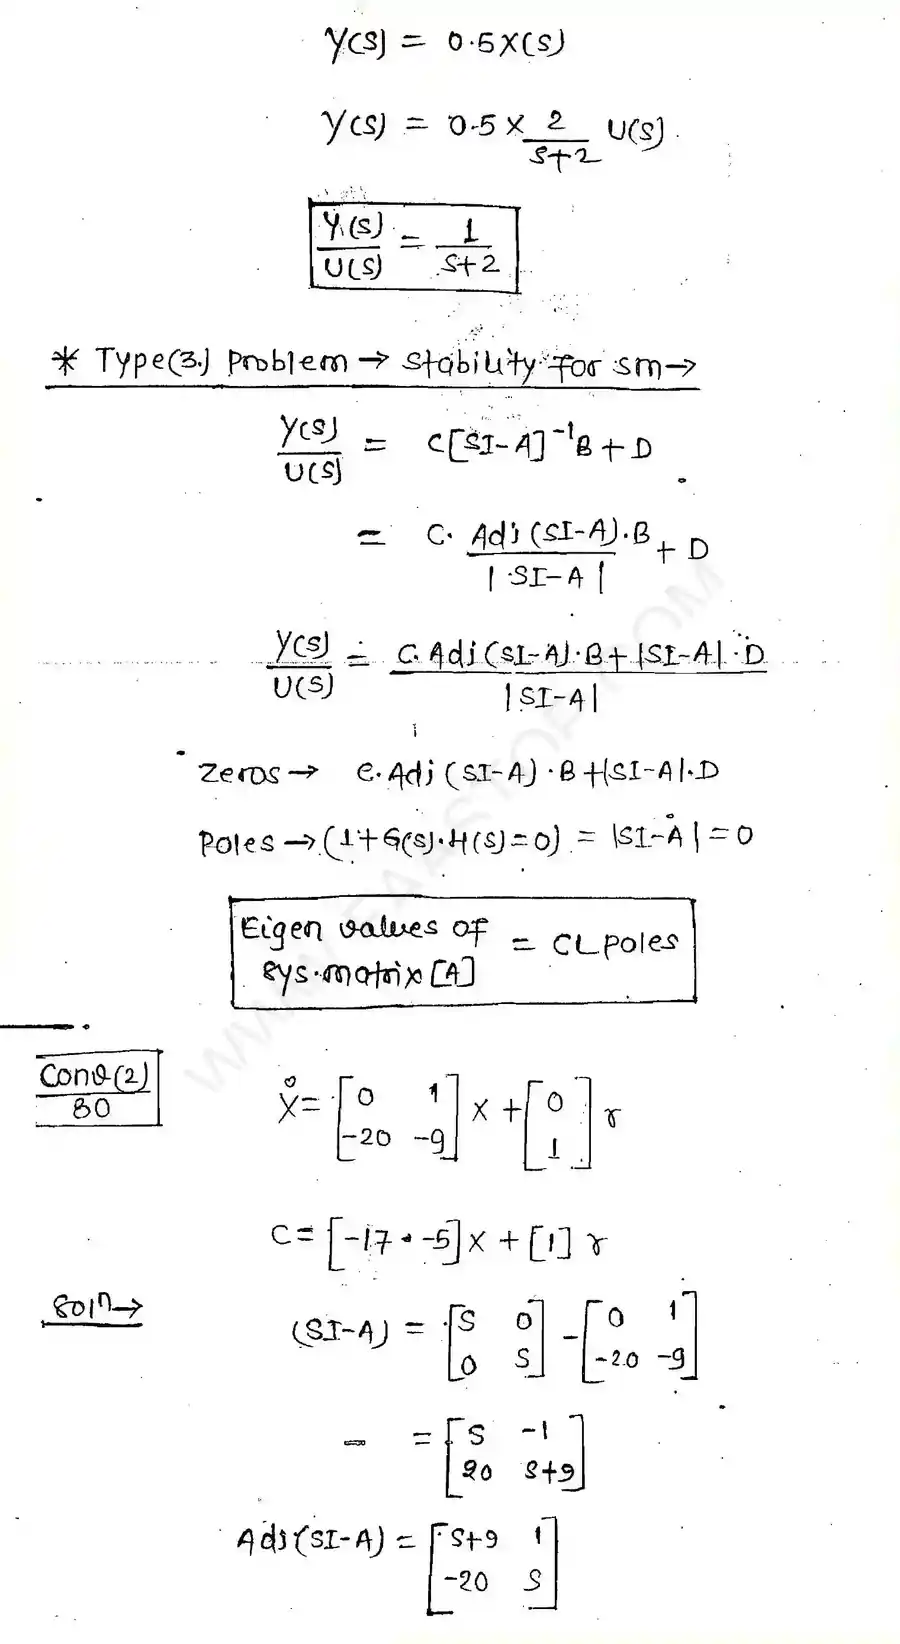 Y(S) = 0.5X(S)
Y(S) = 0.5 × 2/(S+2) U(S).
Y(S)/U(S) = 1/(S+2)
* Type(3.) Problem → Stability for sm →
Y(S)/U(S) = C[SI-A]^-1 B + D
= C. Adj(SI-A).B/|SI-A| + D
Y(S)/U(S) = (C.Adj(SI-A).B + |SI-A|.D)/|SI-A|
Zeros → C.Adj(SI-A).B + |SI-A|.D
Poles → (1+G(S).H(S)=0) = |SI-A| = 0
Eigen values of
sys.matrix [A] = CL poles
Conv(2)/80
Ẋ = [0 1; -20 -9] X + [0; 1] r
C = [-17 -5] X + [1] r
Soln →
(SI-A) = [S 0; 0 S] - [0 1; -20 -9]
= [S -1; 20 S+9]
Adj(SI-A) = [S+9 1; -20 S]